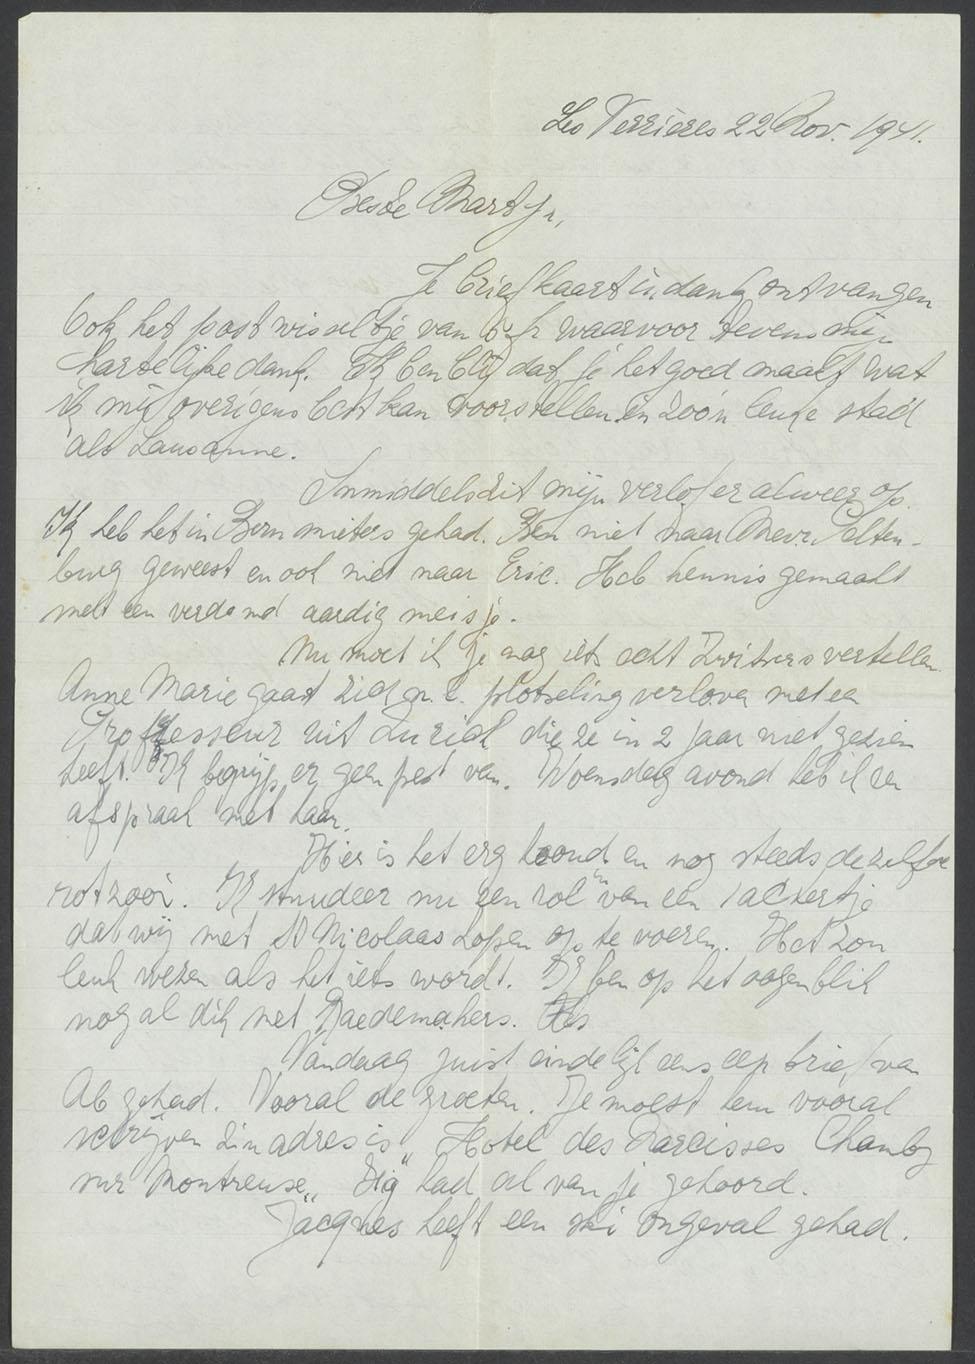 Les Verrières 22 Nov. 1941.
Beste Mart Jr,
Je briefkaart in dank ontvangen
Ook het postwisseltje van 6 fr waarvoor tevens mijn
hartelijke dank. Ik ben blij dat je het goed maakt wat
ik mij overigens best kan voorstellen in zoo'n leuke stad
als Lausanne.
Inmiddels zit mijn verlof er alweer op.
Ik heb het in Bern mieters gehad. Ben niet naar Mevr. Palten-
burg geweest en ook niet naar Eric. Heb kennis gemaakt
met een verdomd aardig meisje.
Nu moet ik je nog iets echt Zwitsers vertellen
Anne Marie gaat zich n.l. plotseling verloven met een
Professeur uit Zurich die ze in 2 jaar niet gezien
heeft. Ik begrijp er geen pest van. Woensdag avond heb ik een
afspraak met haar.
Hier is het erg koud en nog steeds dezelfde
rotzooi. Ik studeer nu een rol in van een
dat wij met St Nicolaas hopen op te voeren. Het zou
leuk wezen als het iets wordt. Ik ben op het oogenblik
nog al dik met Raedemakers.
Vandaag juist eindelijk eens een brief van
Ab gehad. Vooral de groeten. Je moest hem vooral
schrijven zijn adres is „Hotel des Narcisses Chamby
sur Montreuse„ Hij had al van je gehoord.
Jacques heeft een ski ongeval gehad.